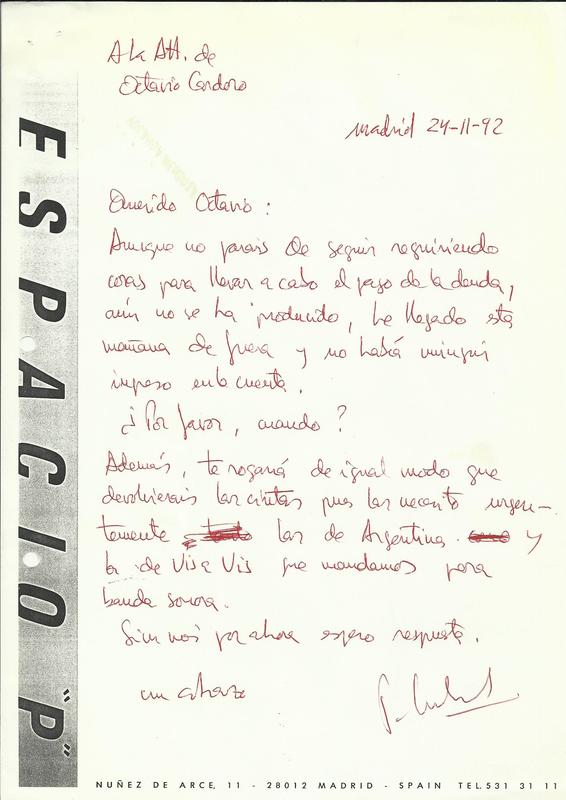 A la Att. de
Octavio Cardoro
Madrid 24-11-92
Querido Octavio :
Aunque no parais de seguir requiriendo
cosas para llevar a cabo el pago de la deuda,
aún no se ha producido, he llegado esta
mañana de fuera y no había ningún
ingreso en la cuenta.
¿Por favor, cuando?
Además, te rogaría de igual modo que
devolvierais las cintas pues las necesito urgen-
temente las de Argentina. y
la de Vis a Vis que mandamos para
banda sonora.
Sin más por ahora espero respuesta.
un abrazo
ESPACIO "P"
NUÑEZ DE ARCE, 11 - 28012 MADRID - SPAIN TEL.531 31 11